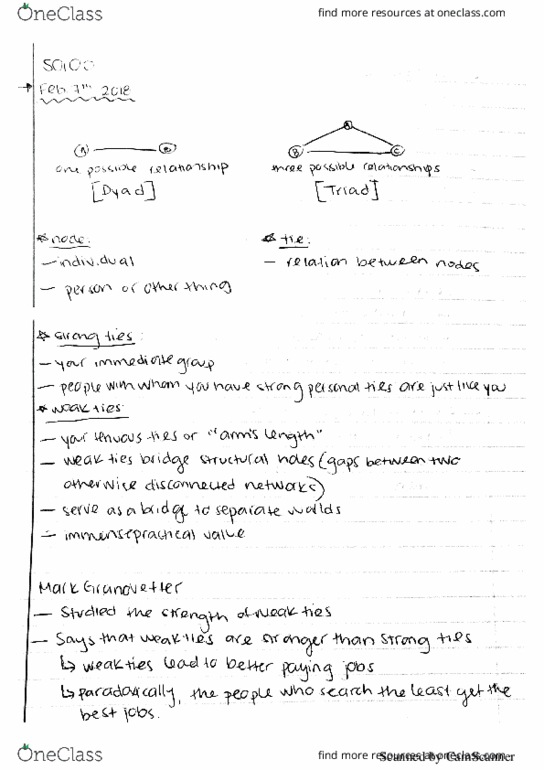 OneClass
find more resources at oneclass.com
SOC100
Feb 7th 2018
A B
A
B C
one possible relationship
three possible relationships
[Dyad]
[Triad]
* node:
* tie:
- individual
- relation between nodes
- person or other thing
* strong ties:
- your immediate group
- people with whom you have strong personal ties are just like you
* weak ties:
- your tenuous ties or "arm's length"
- weak ties bridge structural holes (gaps between two
otherwise disconnected networks)
- serve as a bridge to separate worlds
- immense practical value
Mark Granovetter
- Studied the strength of weak ties
- Says that weak ties are stronger than strong ties
↳ weak ties lead to better paying jobs
↳ paradoxically, the people who search the least get the
best jobs.
OneClass
find more resources at oneclass.com
Scanned by CamScanner